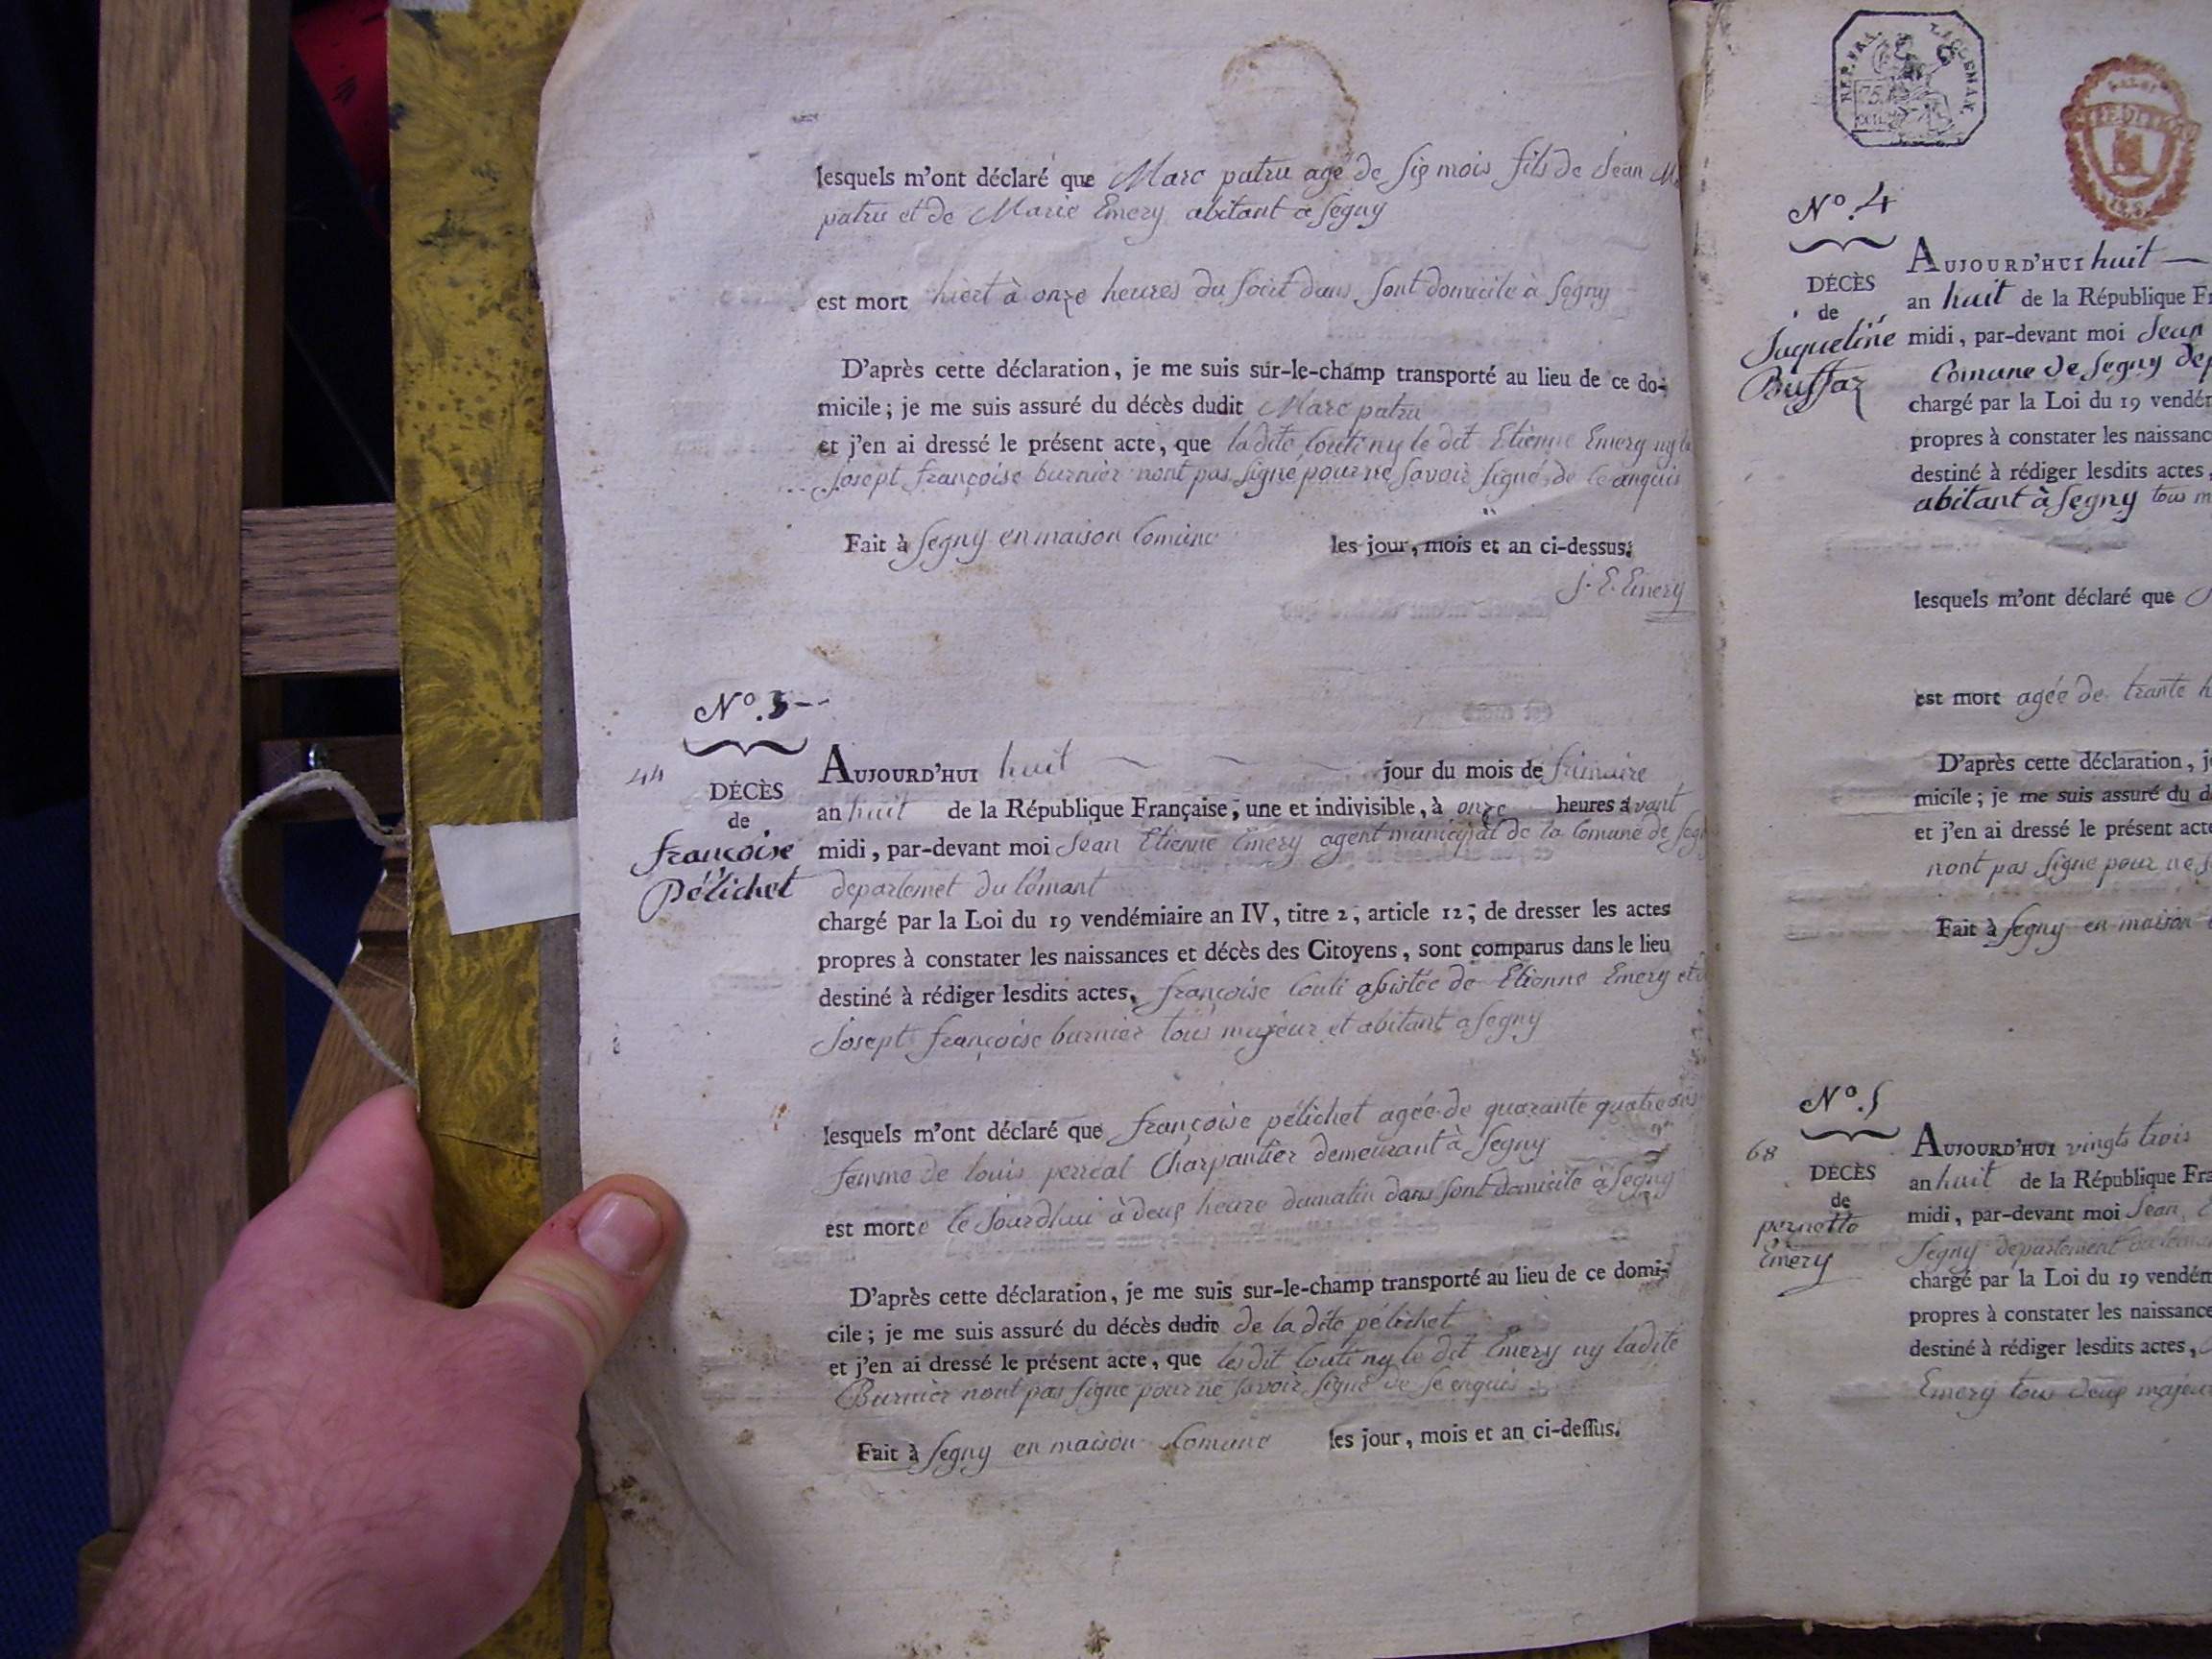 lesquels m'ont déclaré que Marc patru agé de sis mois fils de Jean
patru et de Marie Emery abitant a segny
est mort hiert à onze heures du soirt dans sont domicile à segny
D'après cette déclaration, je me suis sur-le-champ transporté au lieu de ce do-
micile ; je me suis assuré du décès dudit Marc patru
et j'en ai dressé le présent acte, que ladite Couti ny le dit Etienne Emery ny la
Josept françoise burnier nont pas signé pour ne savoir signé de ce anquis
Fait à segny en maison Comune les jour, mois et an ci-dessus.
J. E. Emery
N°. 3
44
DÉCÈS
de
françoise
Pélichet
AUJOURD'HUI huit jour du mois de frimaire
an huit de la République Française, une et indivisible, à onze heures avant
midi, par-devant moi Jean Etienne Emery agent municipal de la Comune de
departemet du lémant
chargé par la Loi du 19 vendémiaire an IV, titre 2, article 12, de dresser les actes
propres à constater les naissances et décès des Citoyens, sont comparus dans le lieu
destiné à rédiger lesdits actes, françoise Couti asistée de Etienne Emery et
Josept françoise burnier tous majeur et abitant a segny
lesquels m'ont déclaré que françoise pélichet agée de quarante quatre ans
femme de louis perréal Charpantier demeurant à segny
est morte le Jourdhui à deus heure dumatin dans sont domicile à segny
D'après cette déclaration, je me suis sur-le-champ transporté au lieu de ce domi-
cile ; je me suis assuré du décès dudit de la dite pélichet
et j'en ai dressé le présent acte, que lesdit Couti ny le dit Emery ny ladite
Burnier nont pas signe pour ne savoir signé de se enquis
Fait à segny en maison Comune les jour, mois et an ci-dessus.
REP. FRA.
75.
CENT.
N°. 4
DÉCÈS
de
Jaqueline
Buffaz
AUJOURD'HUI huit
an huit de la République
midi, par-devant moi Jean
Comune de segny
chargé par la Loi du 19
propres à constater les
destiné à rédiger lesdits actes,
abitant à segny tous
lesquels m'ont déclaré que
est mort agée de trante
D'après cette déclaration,
micile ; je me suis assuré du
et j'en ai dressé le présent
nont pas signe pour ne
Fait à segny en maison
N°. 5
68
DÉCÈS
de
pernette
Emery
AUJOURD'HUI vingts trois
an huit de la République
midi, par-devant moi Jean
segny departement
chargé par la Loi du 19
propres à constater les
destiné à rédiger lesdits actes,
Emery tous deus